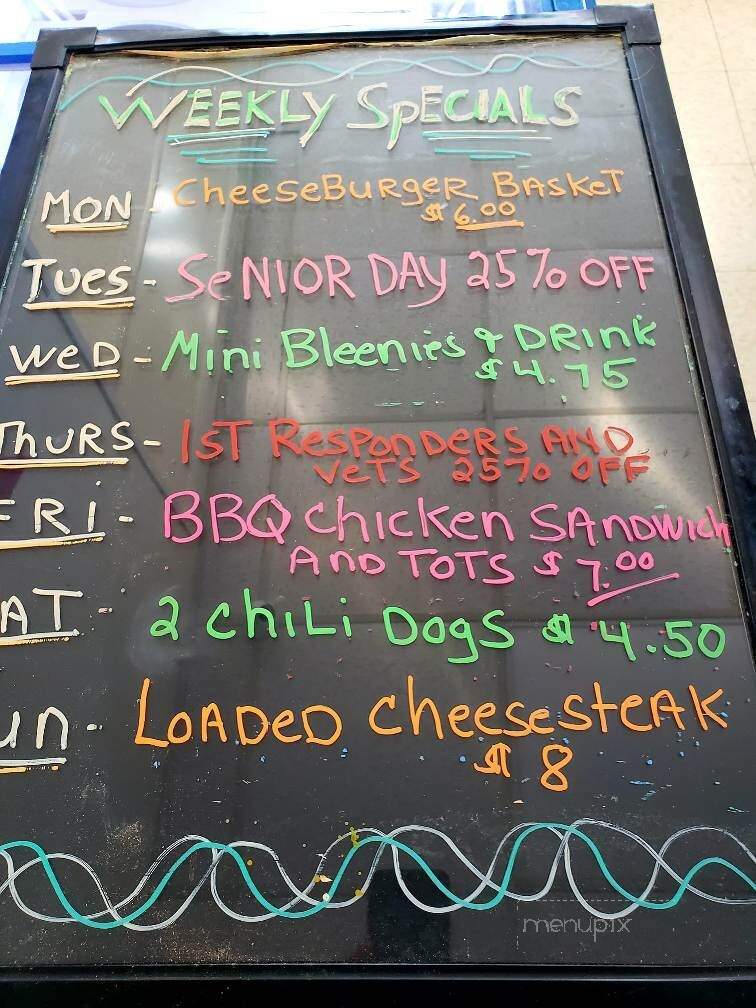 WEEKLY SPECIALS
MON - CHEESEBURGER BASKET
$6.00
TUES - SENIOR DAY 25% OFF
WED - Mini Bleenies & DRINK
$4.75
THURS - 1ST RESPONDERS AND
VETS 25% OFF
FRI - BBQ Chicken SANDWich
AND TOTS $7.00
AT - 2 CHiLi DogS $4.50
un - LOADED CheesesteAK
$8
menupix